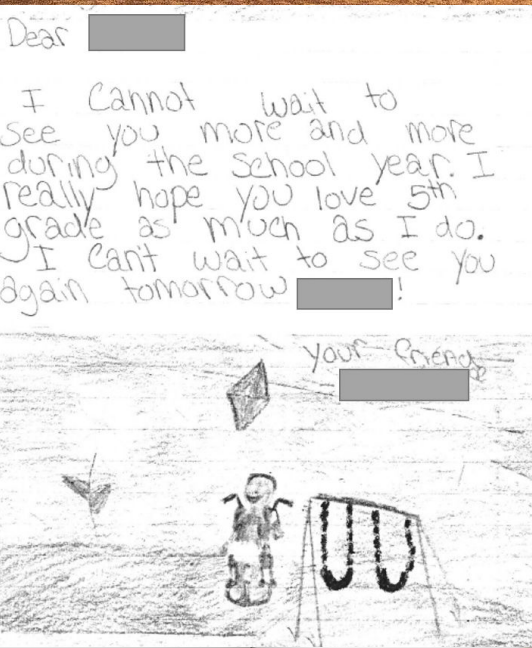 Dear
I Cannot wait to
see you more and more
during the school year. I
really hope you love 5th
grade as much as I do.
I Can't wait to see you
again tomorrow !
your friend